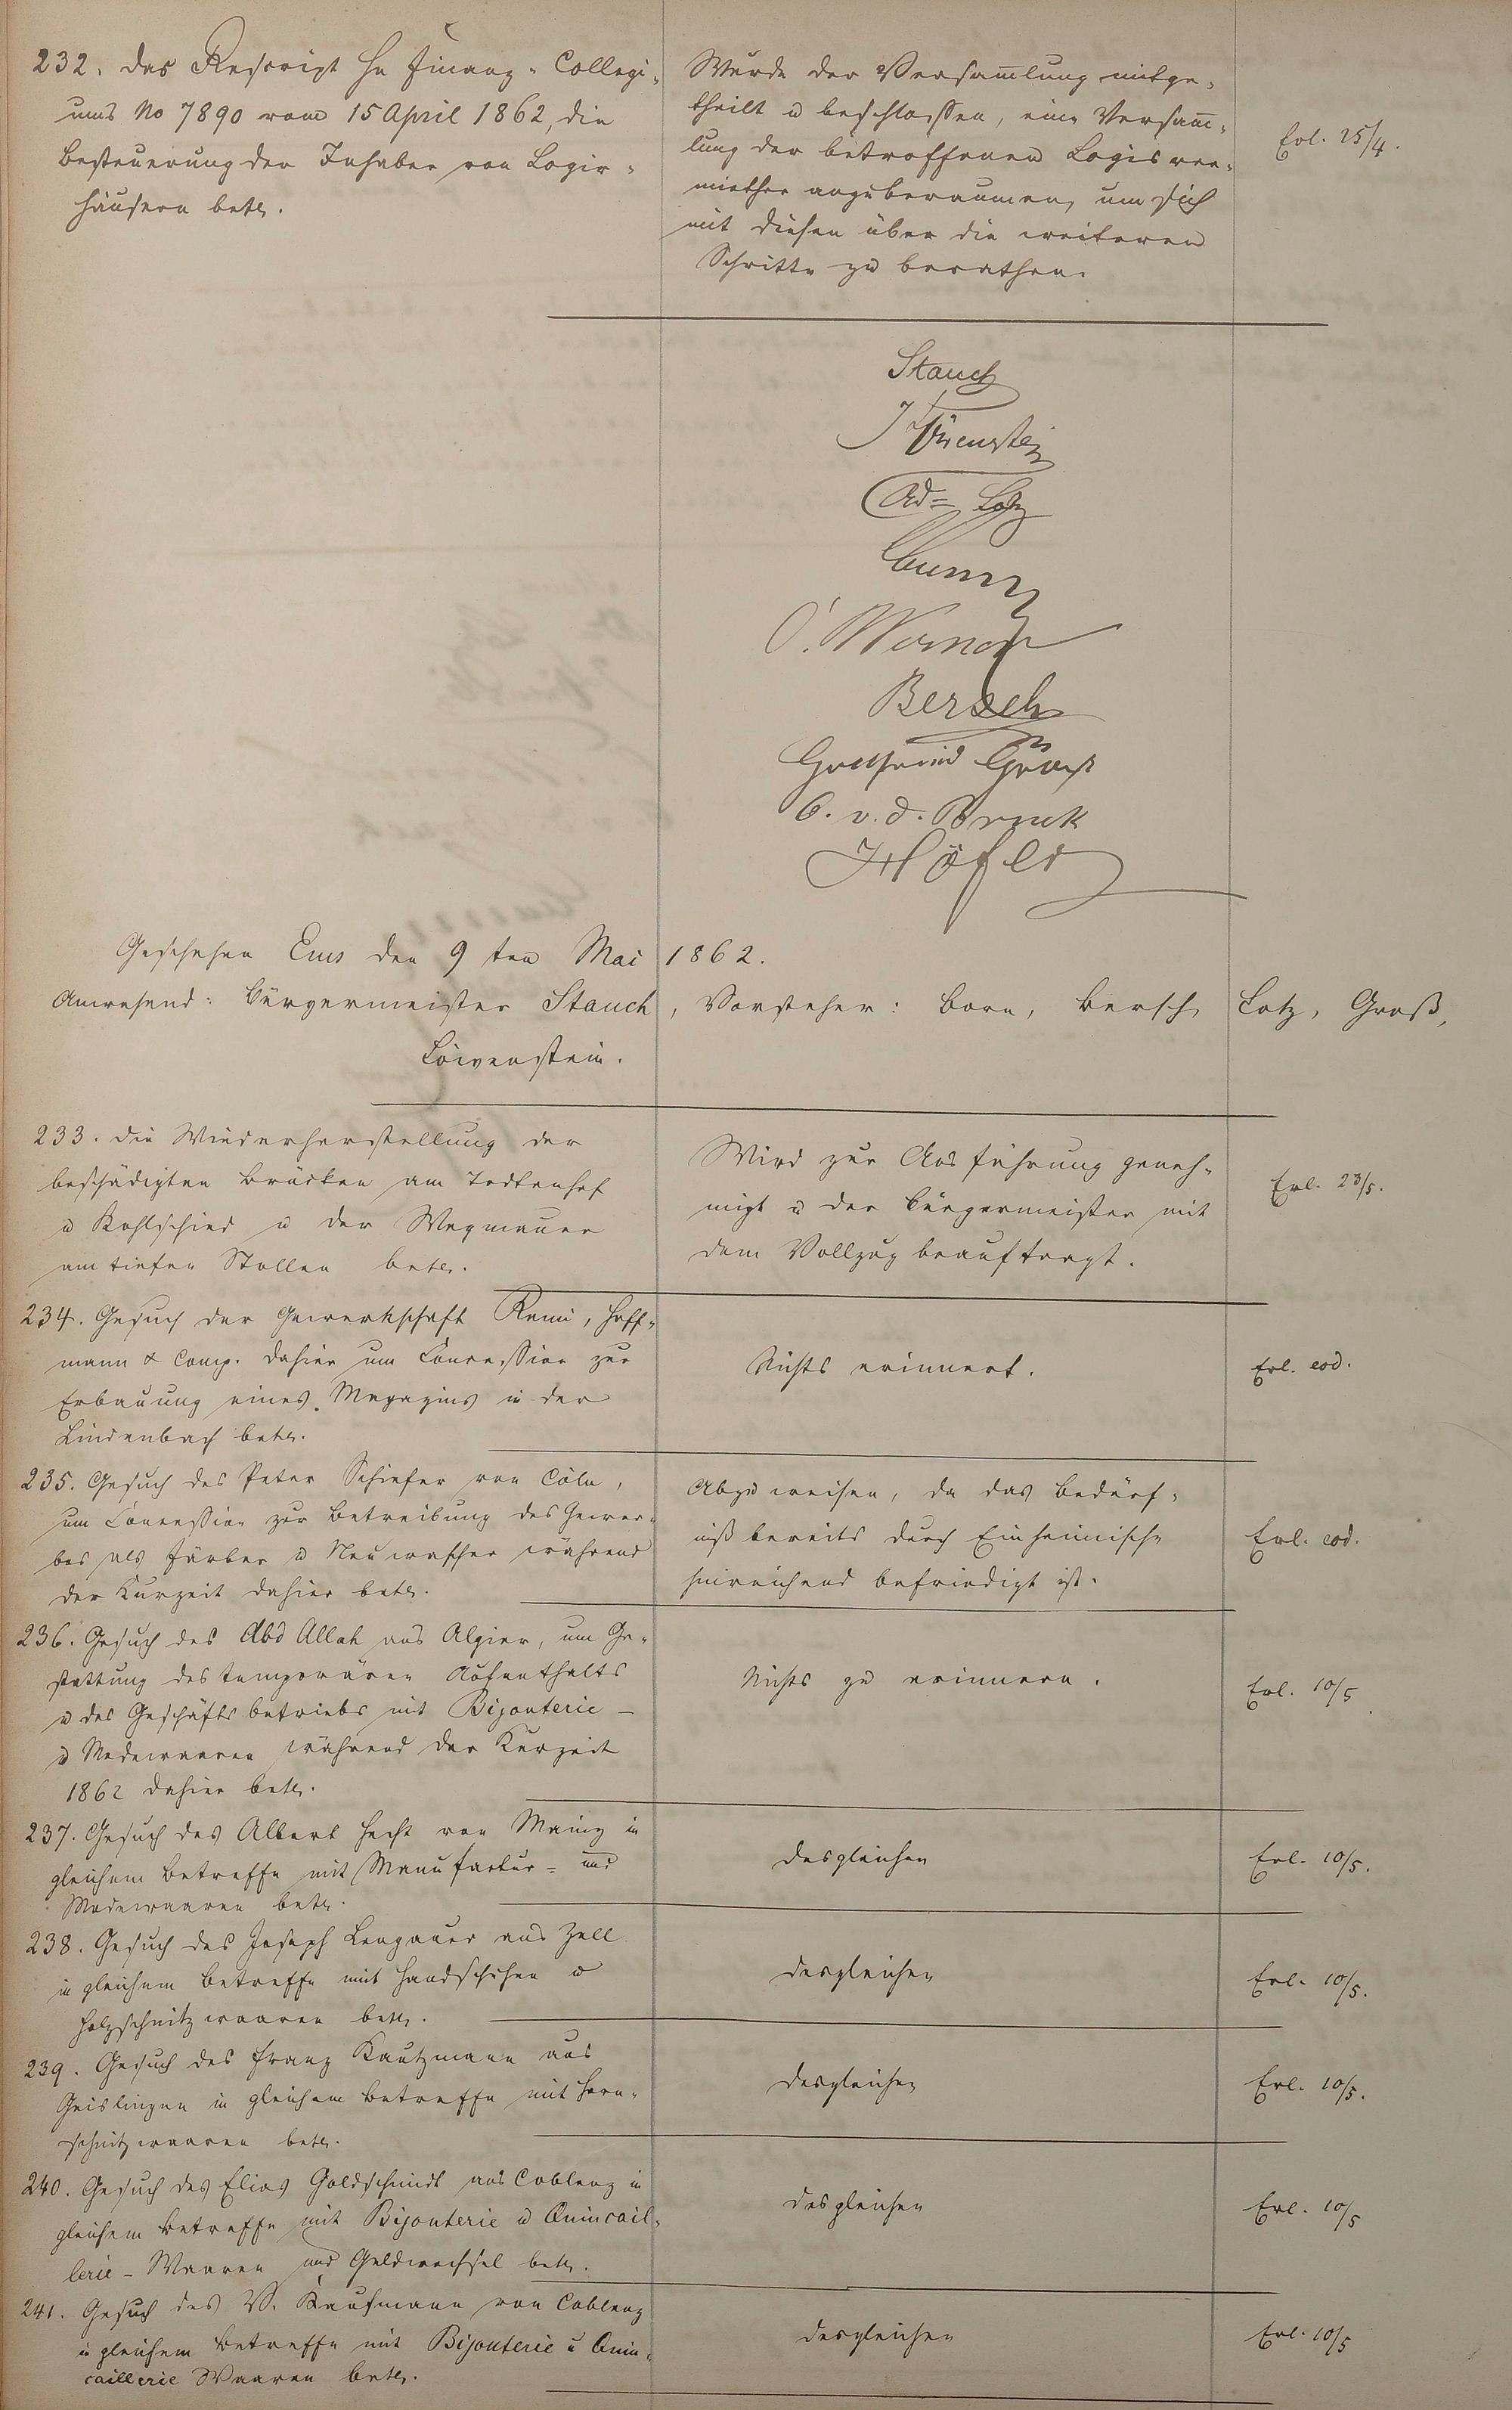 232. Das Rescript Hz. Finanz-Collegi-
ums No 7890 vom 15 April 1862, die
Besteuerung der Inhaber von Logir-
häusern betr.
Wurde der Versam̅lung mitge-
theilt u beschlossen, eine Versam̅-
lung der betroffenen Logisver-
miether anzuberaumen, um sich
mit diesen über die weiteren
Schritte zu berathen.
Erl. 25/4.
Stauch
Ad= Lotz
Bersch
Gottfried Groß
C. v. d. Bruck
Höfer
Geschehen Ems den 9ten Mai 1862.
Anwesend: Bürgermeister Stauch, Vorsteher: Born, Bersch, Lotz, Groß,
Löwenstein.
233. Die Wiederherstellung der
beschädigten Brücken am Todtenhof
u Kohlschied u der Wegmauer
am tiefen Stollen betr.
Wird zur Ausführung geneh-
migt u der Bürgermeister mit
dem Vollzug beauftragt.
Erl. 23/5.
234. Gesuch der Gewerkschaft Remi, Hoff-
mann & Comp. dahier um Concession zur
Erbauung eines Magazins in der
Lindenbach betr.
Nichts erinnert.
Erl. eod.
235. Gesuch des Peter Schiefer von Cöln,
um Concession zur Betreibung des Gewer-
bes als Färber u Neuwascher während
der Kurzeit dahier betr.
Abzuweisen, da das Bedürf-
niß bereits durch Einheimische
hinreichend befriedigt ist.
Erl. eod.
236. Gesuch des Abd Allah aus Algier, um Ge-
stattung des temporären Aufenthalts
u des Geschäftsbetriebs mit Bijouterie-
u Modewaaren während der Kurzeit
1862 dahier betr.
Nichts zu erinnern.
Erl. 10/5.
237. Gesuch des Albert Hecht von Mainz in
gleichem Betreffe mit Manufactur- und
Modewaaren betr.
desgleichen
Erl. 10/5.
238. Gesuch des Joseph Lengauer aus Zell
in gleichem Betreffe mit Handschuhen u
Holzschnitzwaaren betr.
desgleichen
Erl. 10/5.
239. Gesuch des Franz Kautzmann aus
Geislingen in gleichem Betreffe mit Horn-
schnitzwaaren betr.
desgleichen
Erl. 10/5.
240. Gesuch des Elias Goldschmidt aus Coblenz in
gleichem Betreffe mit Bijouterie u Quincail-
lerie-Waaren und Geldwechsel betr.
desgleichen
Erl. 10/5
241. Gesuch des W. Kaufmann von Coblenz
in gleichem Betreffe mit Bijouterie u Quin-
caillerie Waaren betr.
desgleichen
Erl. 10/5